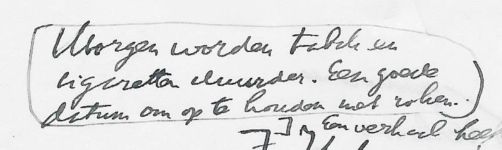 Morgen worden tabak en
sigaretten duurder. Een goede
datum om op te houden met roken.
Een verhaal